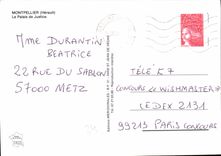 MONTPELLIER (Hérault)
Le Palais de Justice
Mme DURANTIN
BEATRICE
22 RUE DU SABLON
57000 METZ
TÉLÉ K7
CONCOURS LE WISHMASTER
CEDEX 2131
99213 PARIS CONCOURS